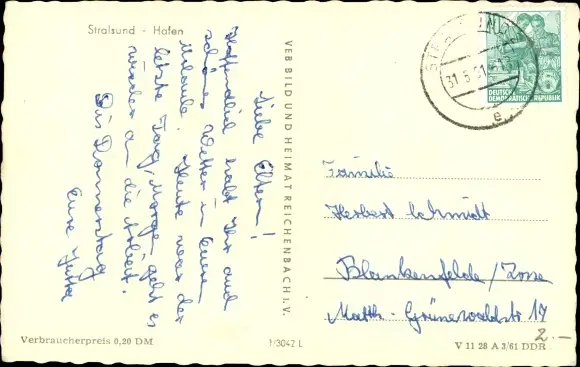 Stralsund - Hafen
Liebe Eltern!
Hoffentlich habt Ihr auch
schönes Wetter in Eurem
Urlaub. Heute war der
letzte Tag, Morgen geht es
wieder an die Arbeit.
Bis Donnerstag
Eure Jutta
Verbraucherpreis 0,20 DM
VEB BILD UND HEIMAT REICHENBACH i. V.
1/3042 L
31.5.61
e
DEUTSCHE
DEMOKRATISCHE REPUBLIK
Familie
Herbert Schmidt
Blankenfelde/Zossen
Matth.-Grünewaldstr 17
2.-
V 11 28 A 3/61 DDR